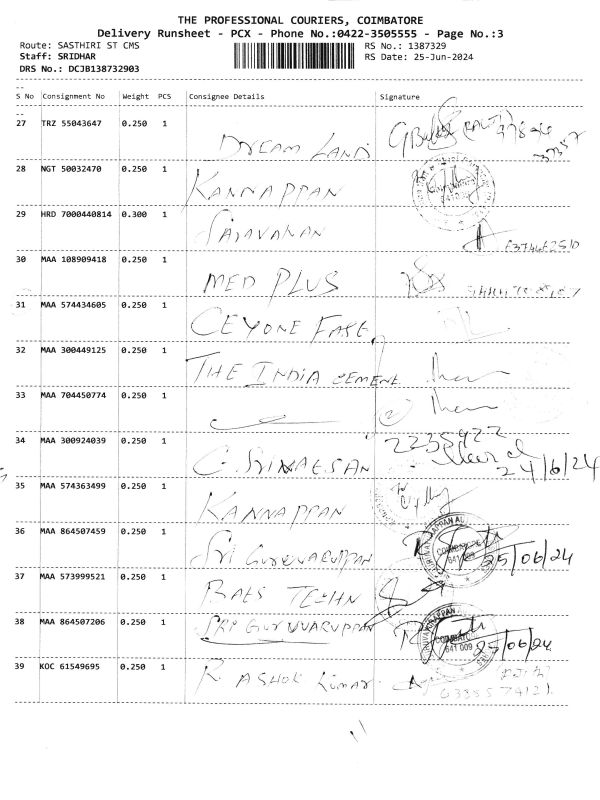 THE PROFESSIONAL COURIERS, COIMBATORE
Delivery Runsheet - PCX - Phone No.:0422-3505555 - Page No.:3
Route: SASTHIRI ST CMS RS No.: 1387329
Staff: SRIDHAR RS Date: 25-Jun-2024
DRS No.: DCJB138732903
--
S No Consignment No Weight PCS Consignee Details Signature
--
27 TRZ 55043647 0.250 1 DREAM LAND
28 NGT 50032470 0.250 1 KANNAPPAN
29 HRD 7000440814 0.300 1 SARAVANAN
30 MAA 108909418 0.250 1 MED PLUS
31 MAA 574434605 0.250 1 CEYONE FASE
32 MAA 300449125 0.250 1 THE INDIA CEMENT
33 MAA 704450774 0.250 1
34 MAA 300924039 0.250 1 2235922
24/6/24
35 MAA 574363499 0.250 1 KANNAPPAN
36 MAA 864507459 0.250 1 SRI GURUVARUPPAN 641 009 25/06/24
37 MAA 573999521 0.250 1 RAES TECHN
38 MAA 864507206 0.250 1 SRI GURUVARUPPAN 641 009 25/06/24
39 KOC 61549695 0.250 1 R. ASHOK KUMAR